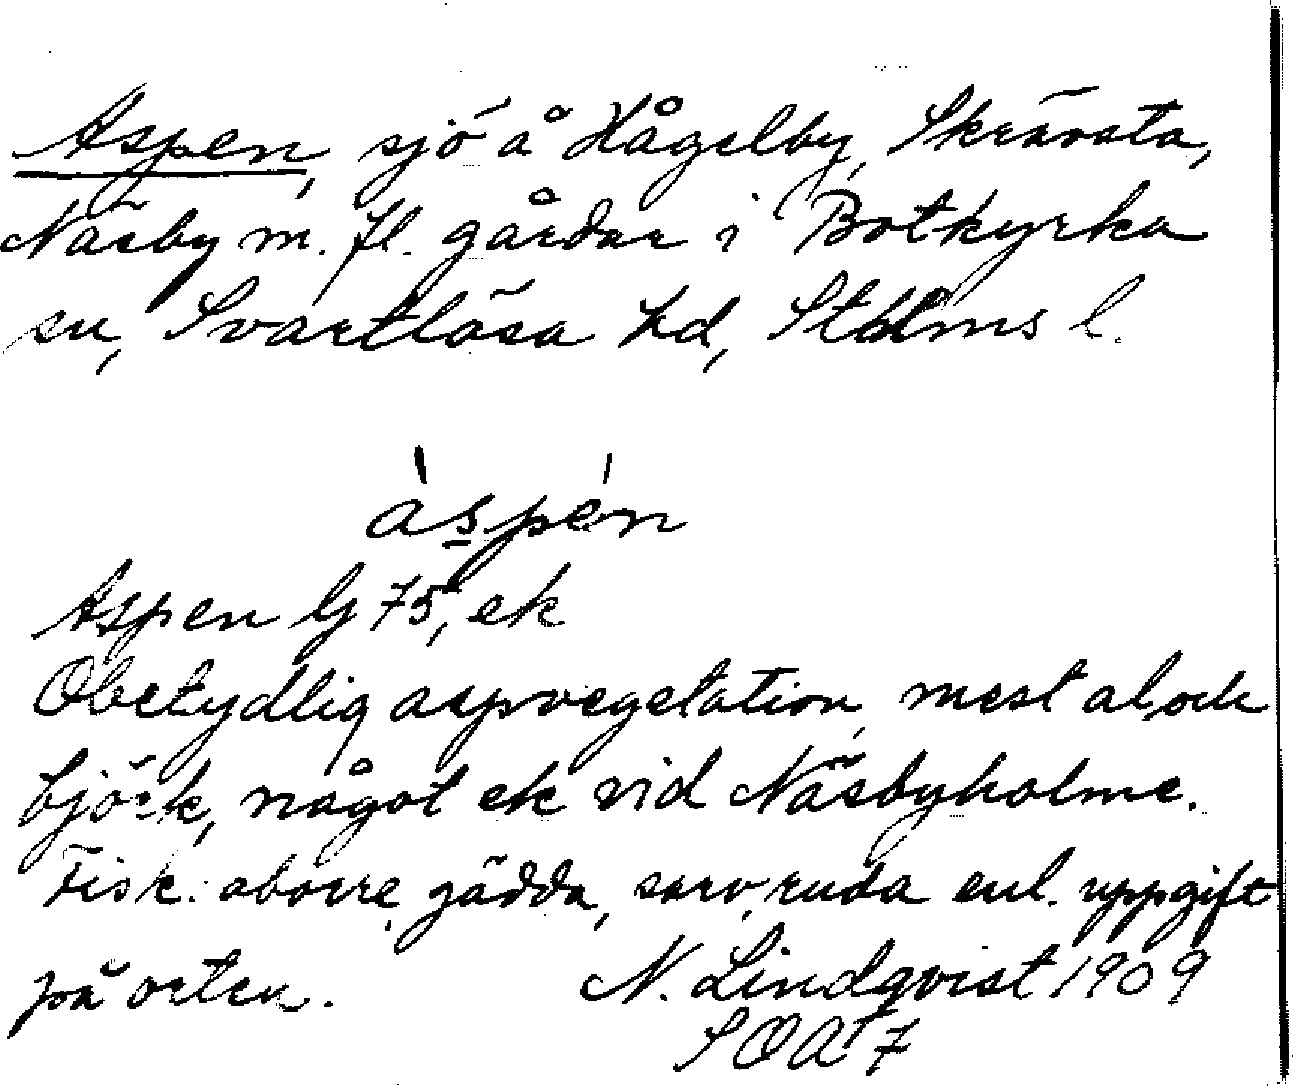 Aspen, sjö å Hågelby, Skrävsta,
Näsby m. fl. gårdar i Botkyrka
sn, Svartlösa hd, Sthlms l.
àspén
Aspen G 75, ek
Obetydlig aspvegetation, mest al, och
björk, något ek vid Näsbyholme.
Fisk: aborre, gädda, sarv, ruda enl. uppgift
på orten. N. Lindqvist 1909
SOA 7